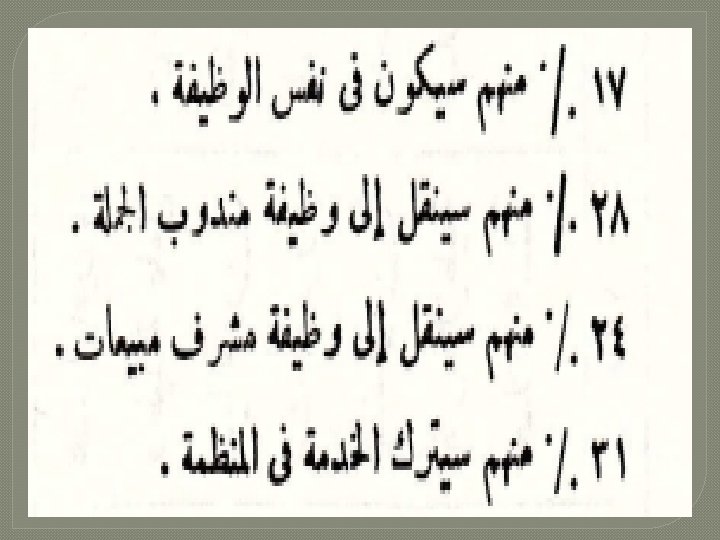 ١٧ ٪ منهم سيكون فى نفس الوظيفة .
٢٨ ٪ منهم سينقل إلى وظيفة مندوب الجملة .
٢٤ ٪ منهم سينقل إلى وظيفة مشرف مبيعات .
٣١ ٪ منهم سيترك الخدمة فى المنظمة .